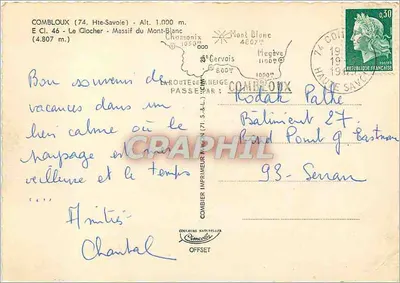 COMBLOUX (74, Hte-Savoie) - Alt. 1.000 m.
E Cl. 46 - Le Clocher - Massif du Mont-Blanc
(4.807 m.)
Bon souvenir de
vacances dans un
lieu calme où le
paysage est mer
veilleux et le temps
....
Amitiés
Chantal
COMBIER IMPRIMEUR MACON
OFFSET
Mont Blanc
4807m
Megève
St Gervais
LA ROUTE NEIGE
PASSE PAR
COMBLOUX
74 COMBLOUX
HAUTE SAVOIE
0,30
REPUBLIQUE FRANCAISE
Kodak Pathé
Bâtiment 27
Rond Point G. Eastman
93 - Sevran
CPAPHIL